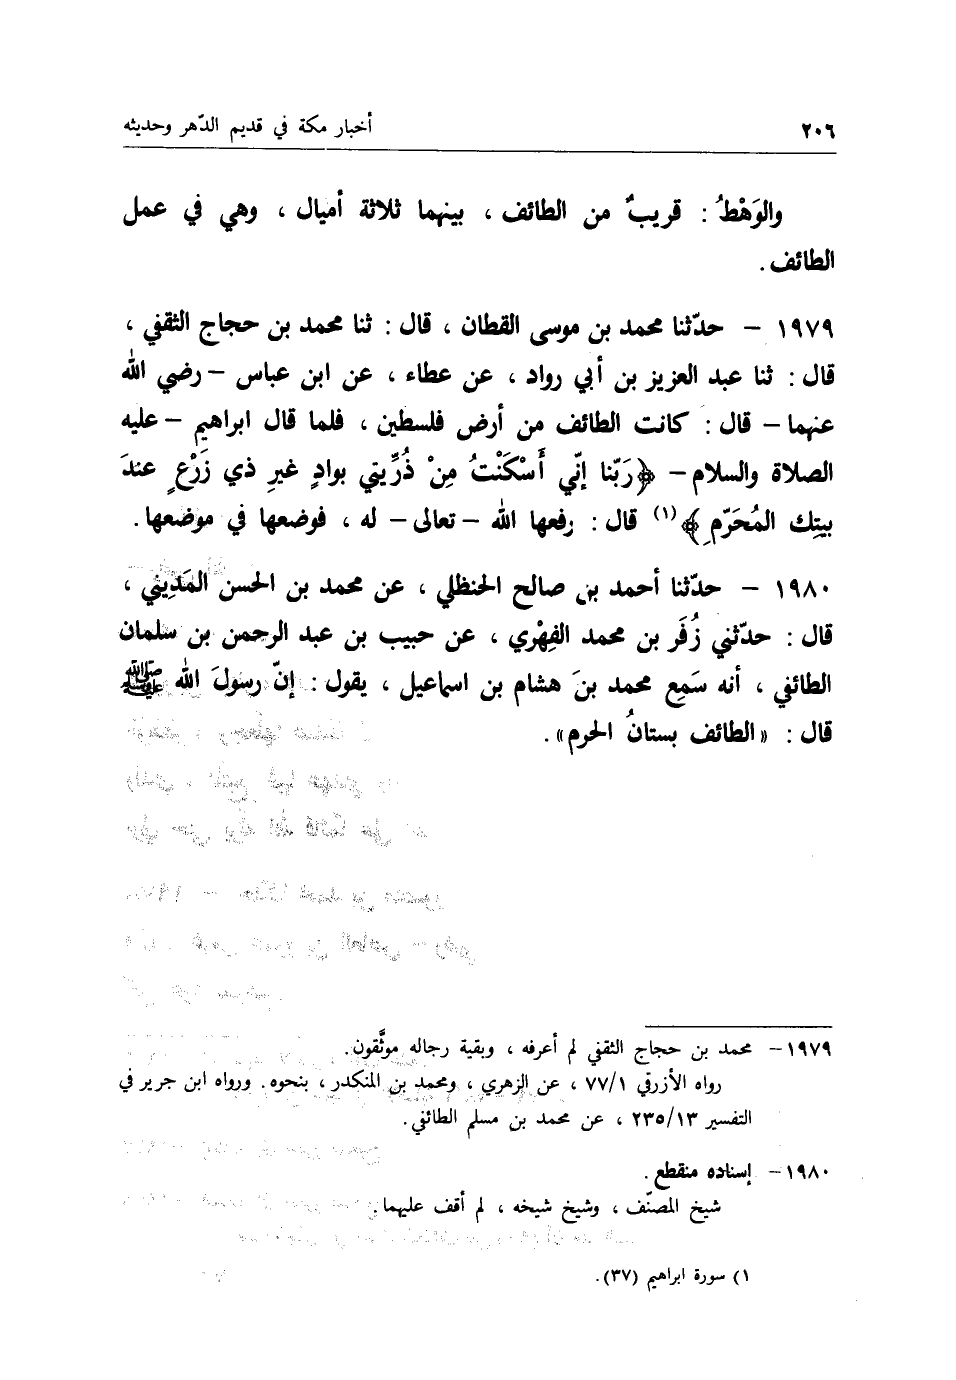 ٢٠٦ أخبار مكة في قديم الدّهر وحديثه
والوَهْطُ : قريبٌ من الطائف ، بينهما ثلاثة أميال ، وهي في عمل
الطائف .
١٩٧٩ – حدّثنا محمد بن موسى القطان ، قال : ثنا محمد بن حجاج الثقفي ،
قال : ثنا عبد العزيز بن أبي رواد ، عن عطاء ، عن ابن عباس – رضي الله
عنهما – قال : كانت الطائف من أرض فلسطين ، فلما قال ابراهيم – عليه
الصلاة والسلام – ﴿رَبّنا إنّي أَسْكَنْتُ مِنْ ذُرِّيتي بوادٍ غيرِ ذي زَرْعٍ عندَ
بيتِك المُحَرّمِ﴾ (١) قال : رفعها الله – تعالى – له ، فوضعها في موضعها .
١٩٨٠ – حدّثنا أحمد بن صالح الحنظلي ، عن محمد بن الحسن المَدِيني ،
قال : حدّثني زُفَر بن محمد الفِهْري ، عن حبيب بن عبد الرحمن بن سلمان
الطائفي ، أنه سَمِع محمد بنَ هشام بن اسماعيل ، يقول : إنّ رسولَ الله ﷺ
قال : «الطائف بستانُ الحرم» .
١٩٧٩ – محمد بن حجاج الثقفي لم أعرفه ، وبقية رجاله موثّقون .
رواه الأزرقي ٧٧/١ ، عن الزهري ، ومحمد بن المنكدر ، بنحوه . ورواه ابن جرير في
التفسير ٢٣٥/١٣ ، عن محمد بن مسلم الطائفي .
١٩٨٠ – إسناده منقطع .
شيخ المصنّف ، وشيخ شيخه ، لم أقف عليهما .
١) سورة ابراهيم (٣٧) .